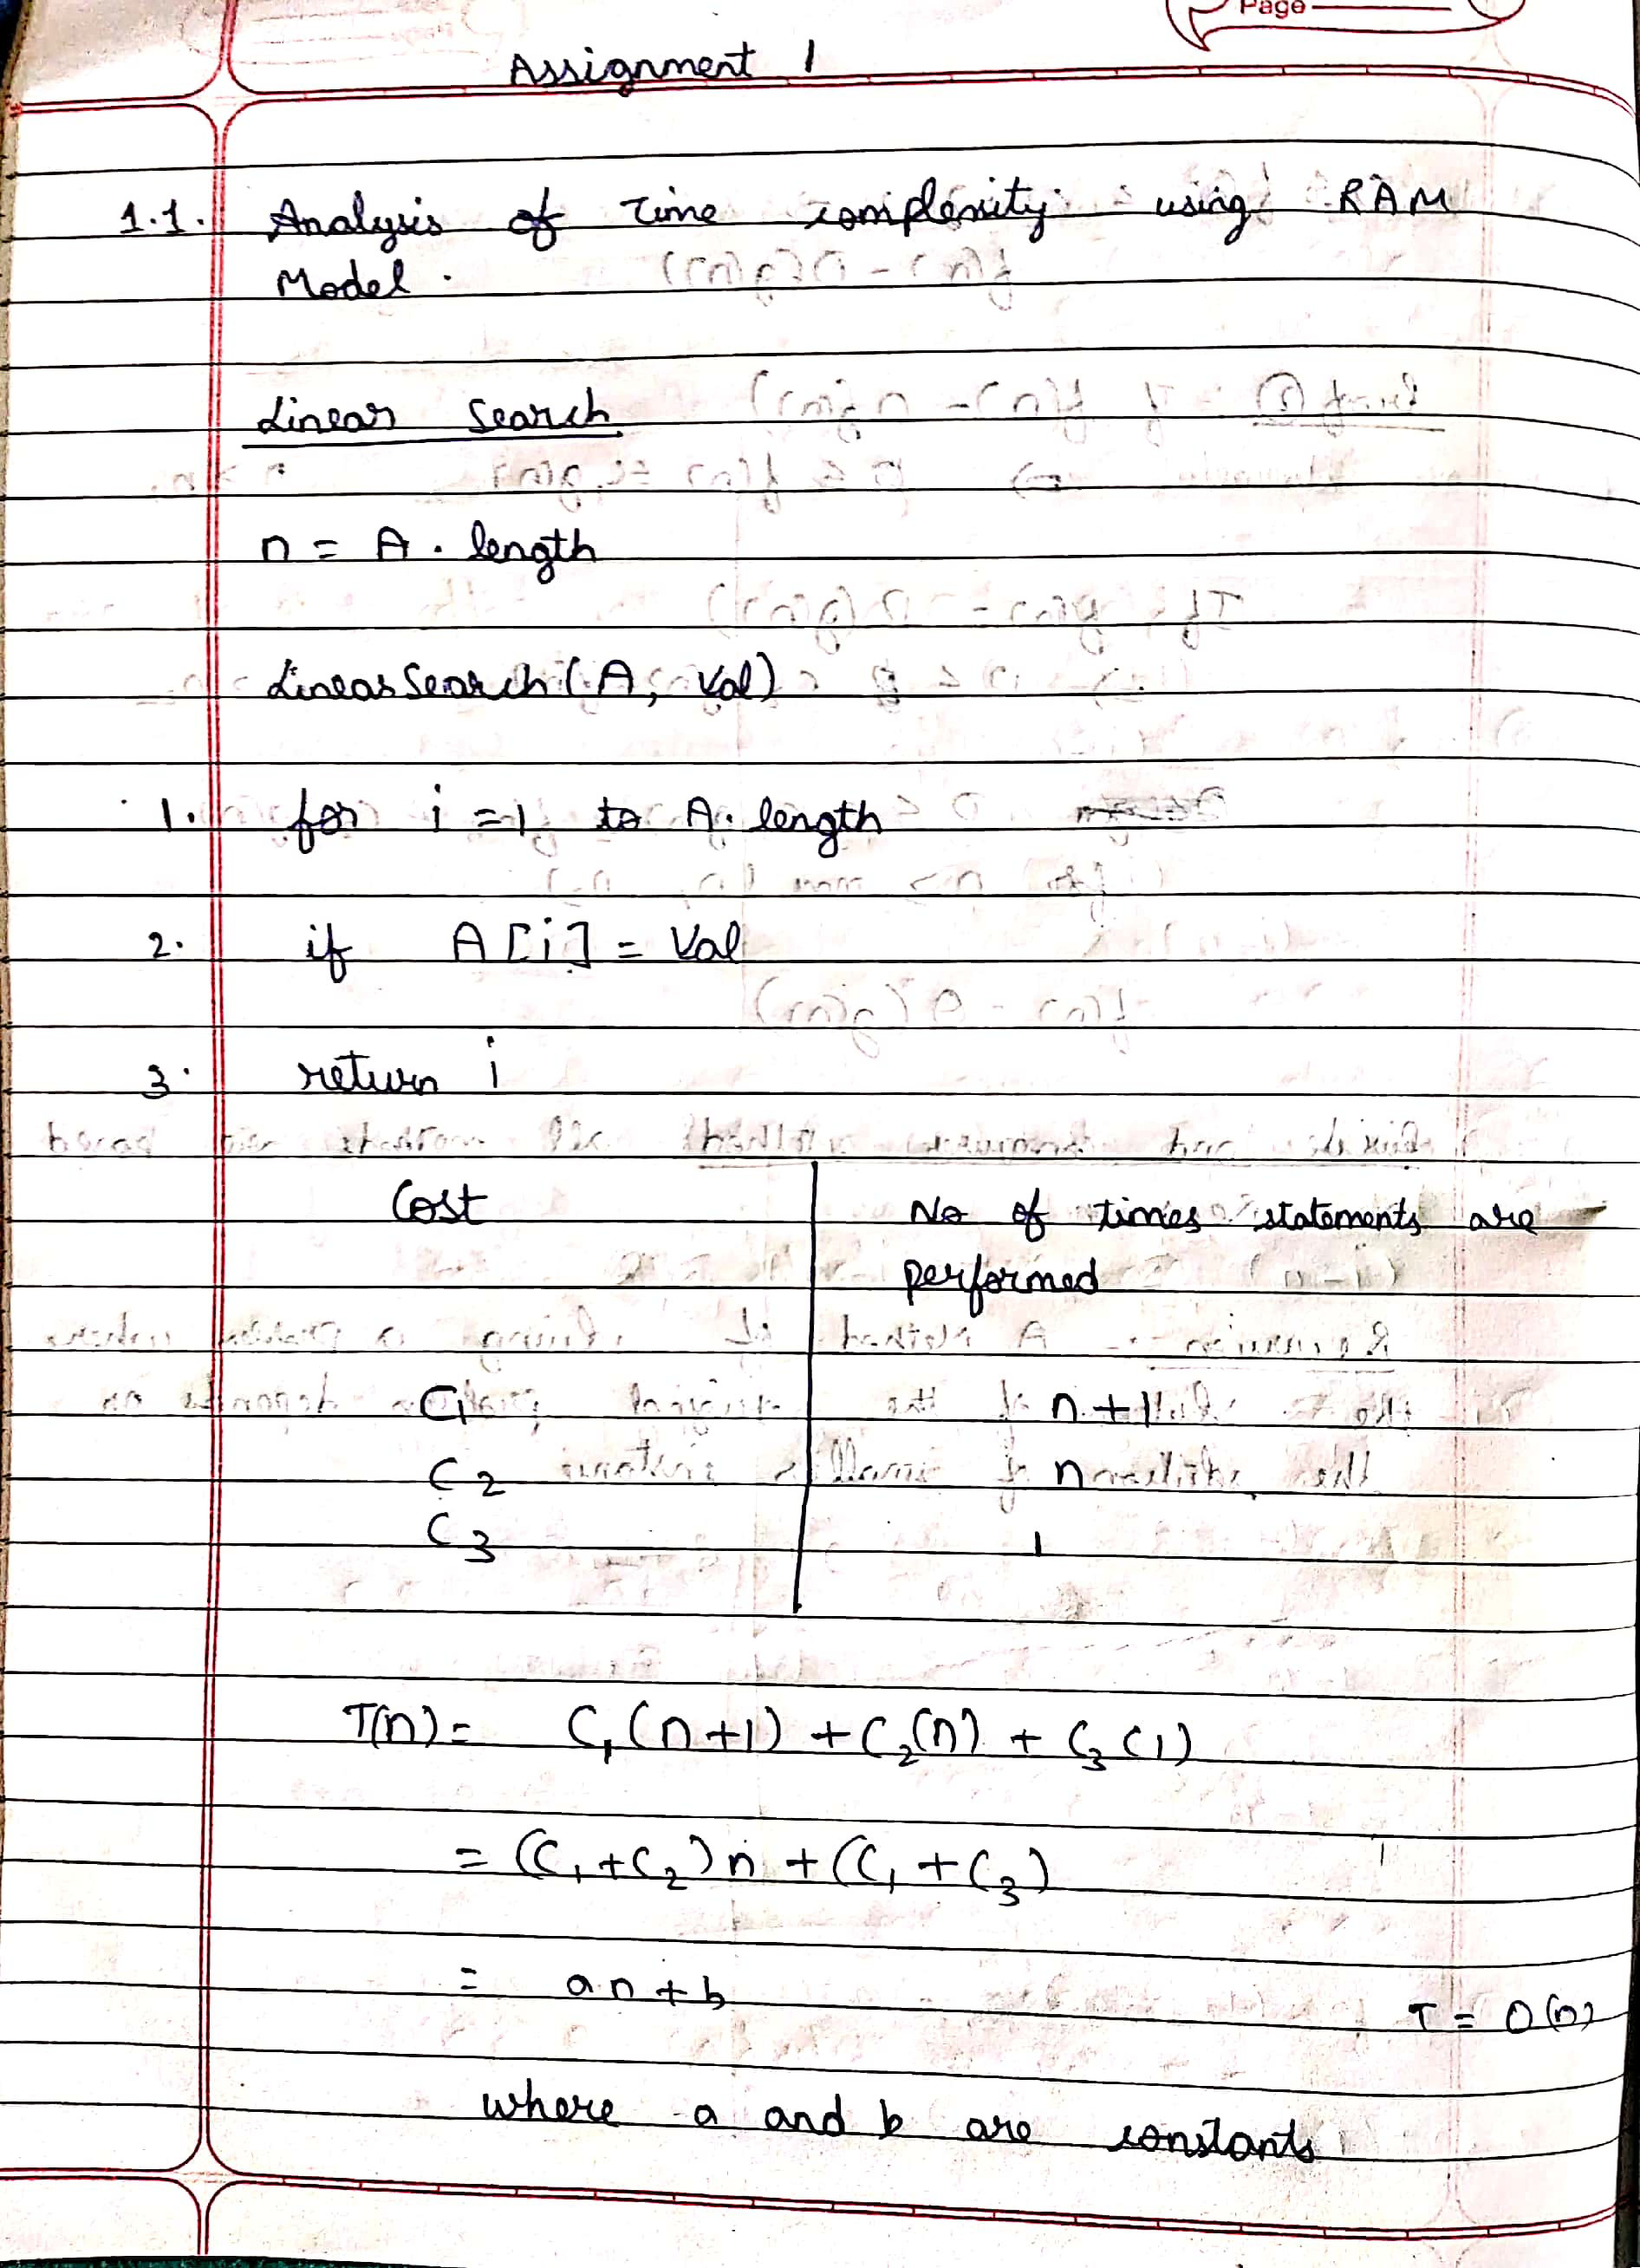 Page
Assignment 1
1.1. Analysis of Time complexity using RAM
Model.
Linear Search
n = A.length
LinearSearch(A, Val)
1. for i=1 to A.length
2. if A[i] = Val
3. return i
Cost No of times statements are
performed
C1 n+1
C2 n
C3 1
T(n) = C1(n+1) + C2(n) + C3(1)
= (C1+C2)n + (C1+C3)
= an+b
T = O(n)
where a and b are constants